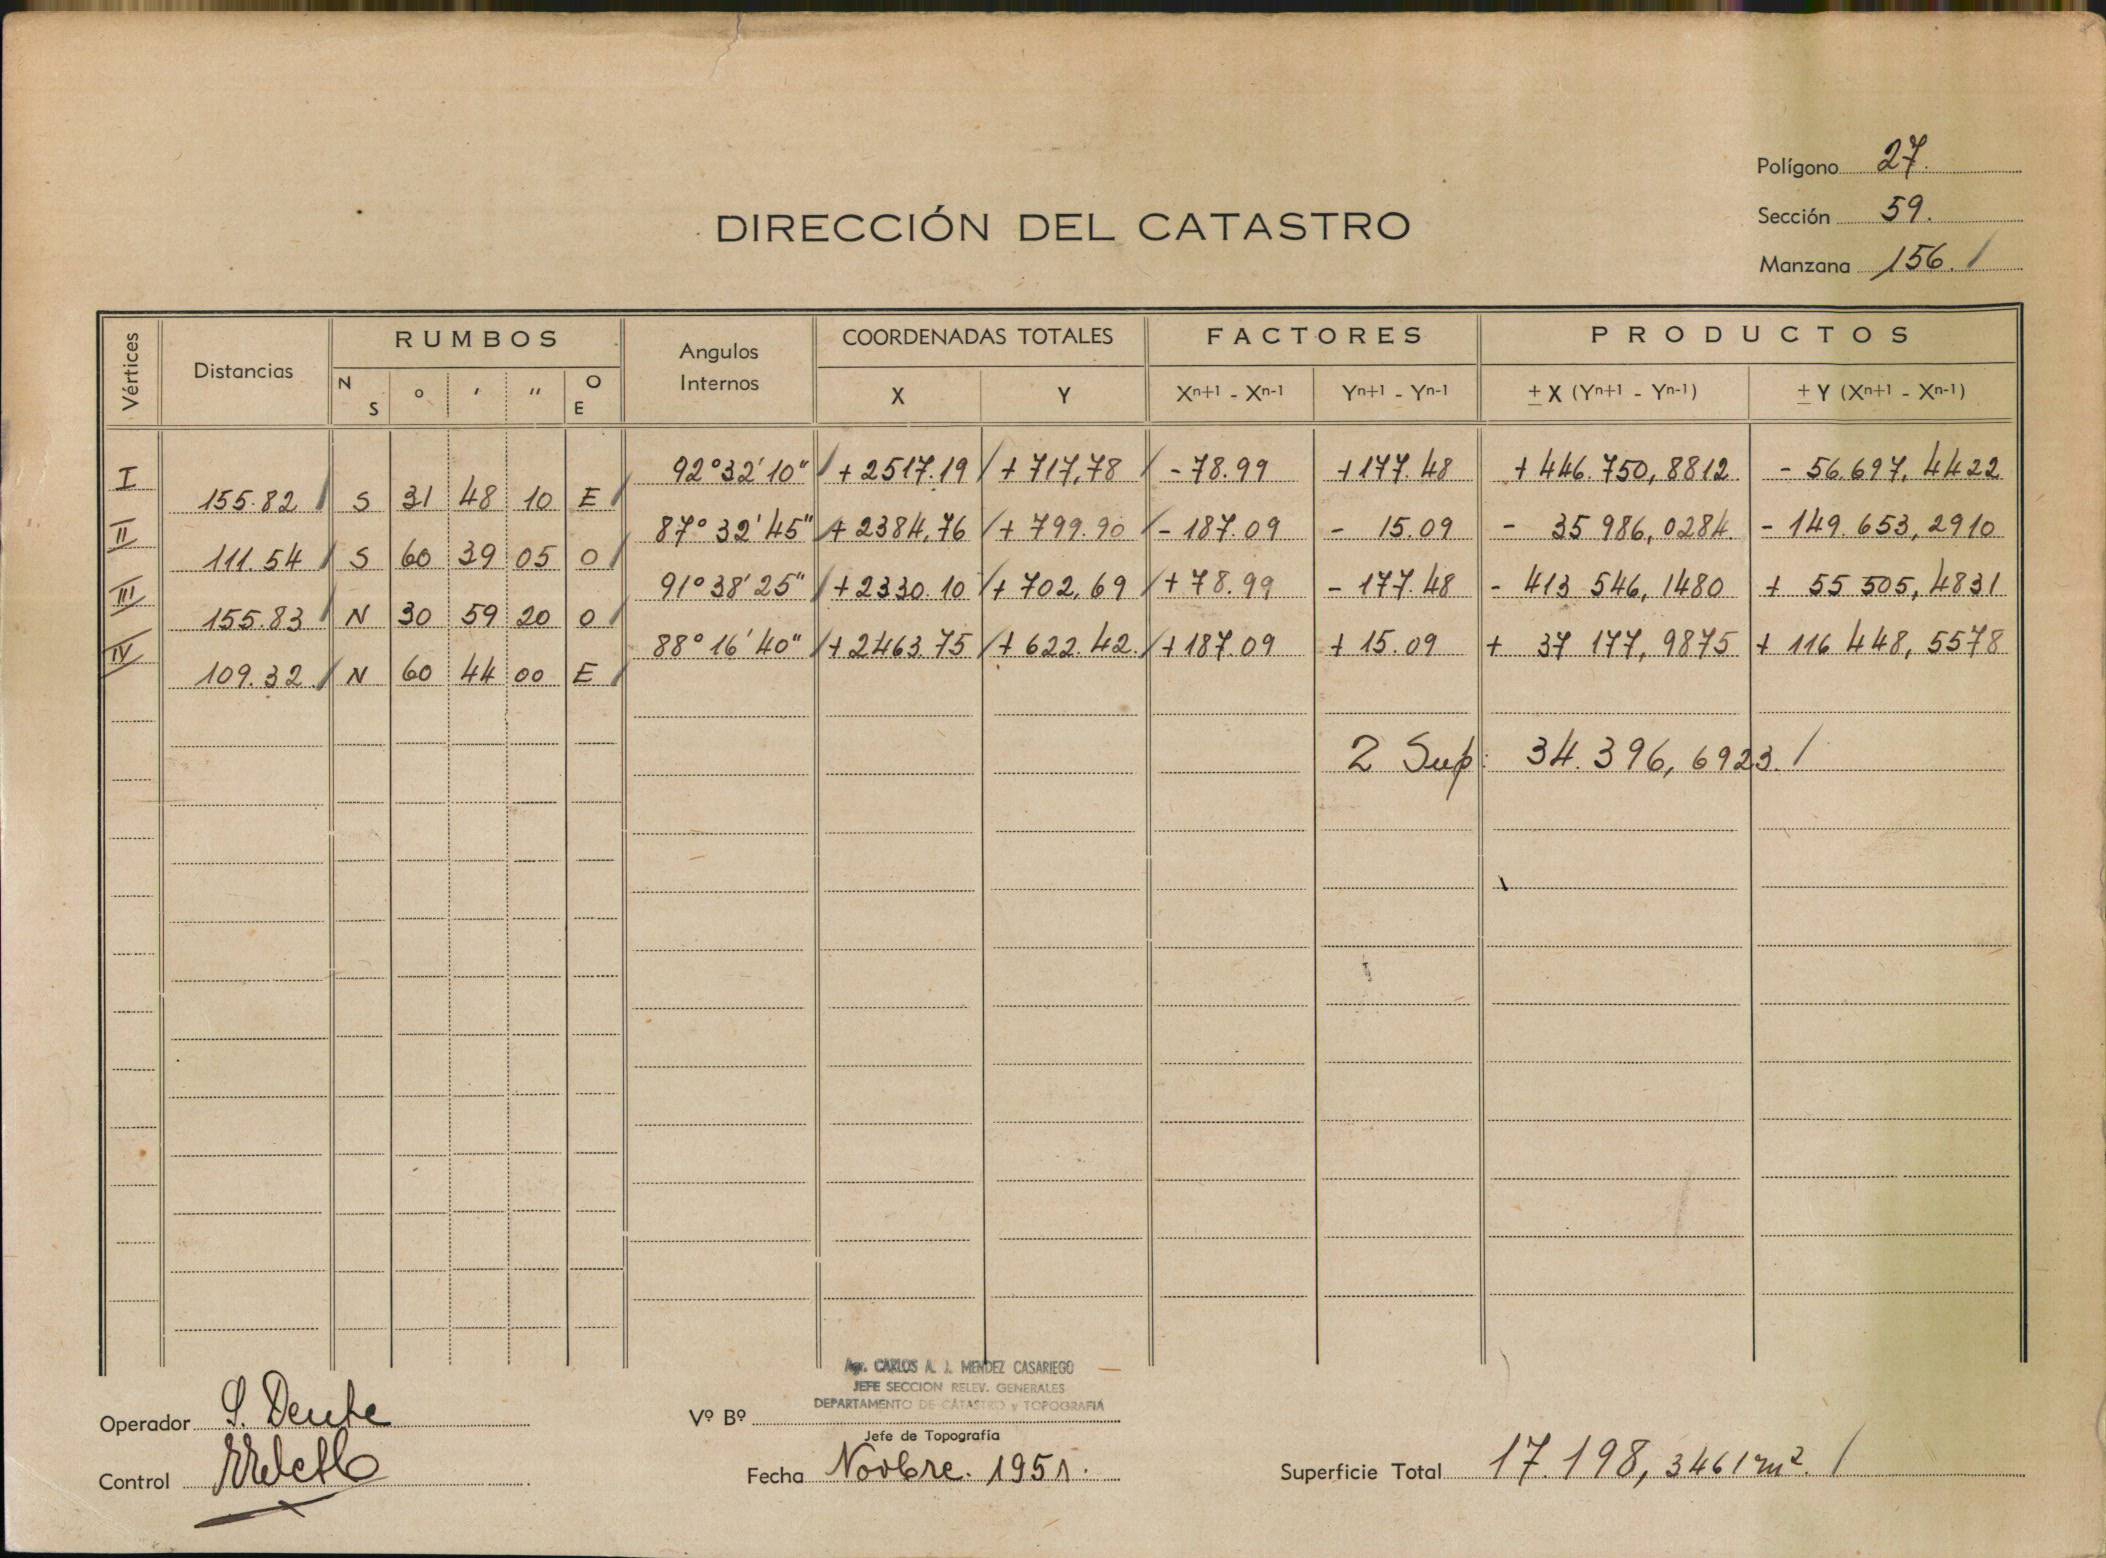 Polígono 27.
Sección 59.
DIRECCIÓN DEL CATASTRO
Manzana 156. /
Vértices Distancias RUMBOS Angulos Internos COORDENADAS TOTALES FACTORES PRODUCTOS
N S ° ′ ″ O E X Y Xn+1 - Xn-1 Yn+1 - Yn-1 ± X (Yn+1 - Yn-1) ± Y (Xn+1 - Xn-1)
I 92°32'10" / + 2517.19 / + 717,78 / - 78.99 + 177.48 + 446.750,8812 - 56.697,4422
155.82 / S 31 48 10 E /
II 87°32'45" / + 2384,76 / + 799.90 / - 187.09 - 15.09 - 35 986,0284 - 149.653,2910
111.54 / S 60 39 05 O /
III 91°38'25" / + 2330.10 / + 702,69 / + 78.99 - 177.48 - 413 546,1480 + 55 505,4831
155.83 / N 30 59 20 O /
IV 88°16'40" / + 2463.75 / + 622.42 / + 187.09 + 15.09 + 37 177,9875 + 116 448,5578
109.32 / N 60 44 00 E /
2 Sup: 34.396,6923. /
Agr. CARLOS A. J. MENDEZ CASARIEGO
JEFE SECCION RELEV. GENERALES
DEPARTAMENTO DE CATASTRO y TOPOGRAFIA
Operador Vº Bº
Jefe de Topografía
Control Fecha Novbre. 1951. Superficie Total 17.198,3461 m². /